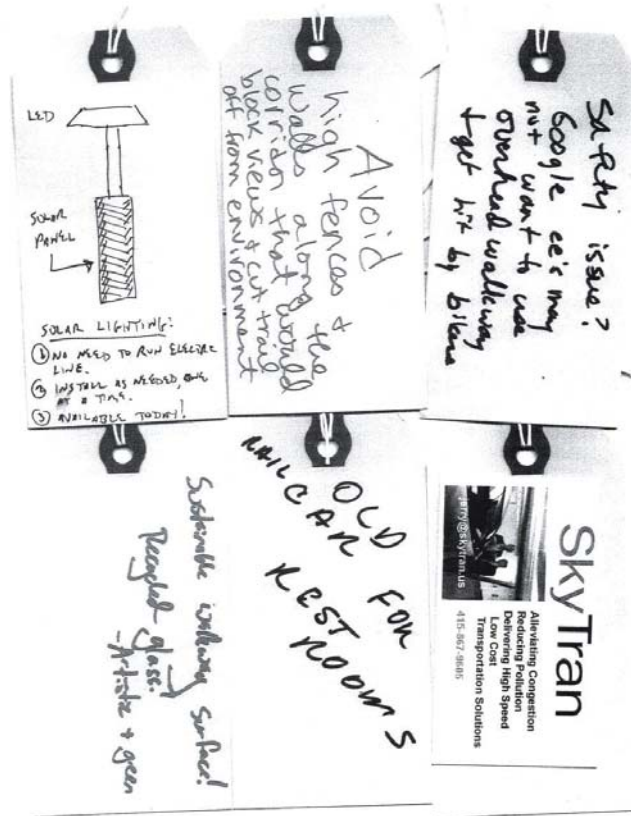 LED
SOLAR
PANEL
SOLAR LIGHTING:
① NO NEED TO RUN ELECTRIC
LINE.
② INSTALL AS NEEDED, ONE
AT A TIME.
③ AVAILABLE TODAY!
Avoid
high fences &
walls along the
corridor that would
block views & cut trail
off from environment
Safety issue?
Google ee's may
not want to use
overhead walkway
& get hit by bikers
Sustainable walkway surface!
Recycled glass!
- Artistic + green
OLD
RAIL CAR FOR
REST ROOMS
SkyTran
Alleviating Congestion
Reducing Pollution
Delivering High Speed
Low Cost
Transportation Solutions
jerry@skytran.us
415-867-9605